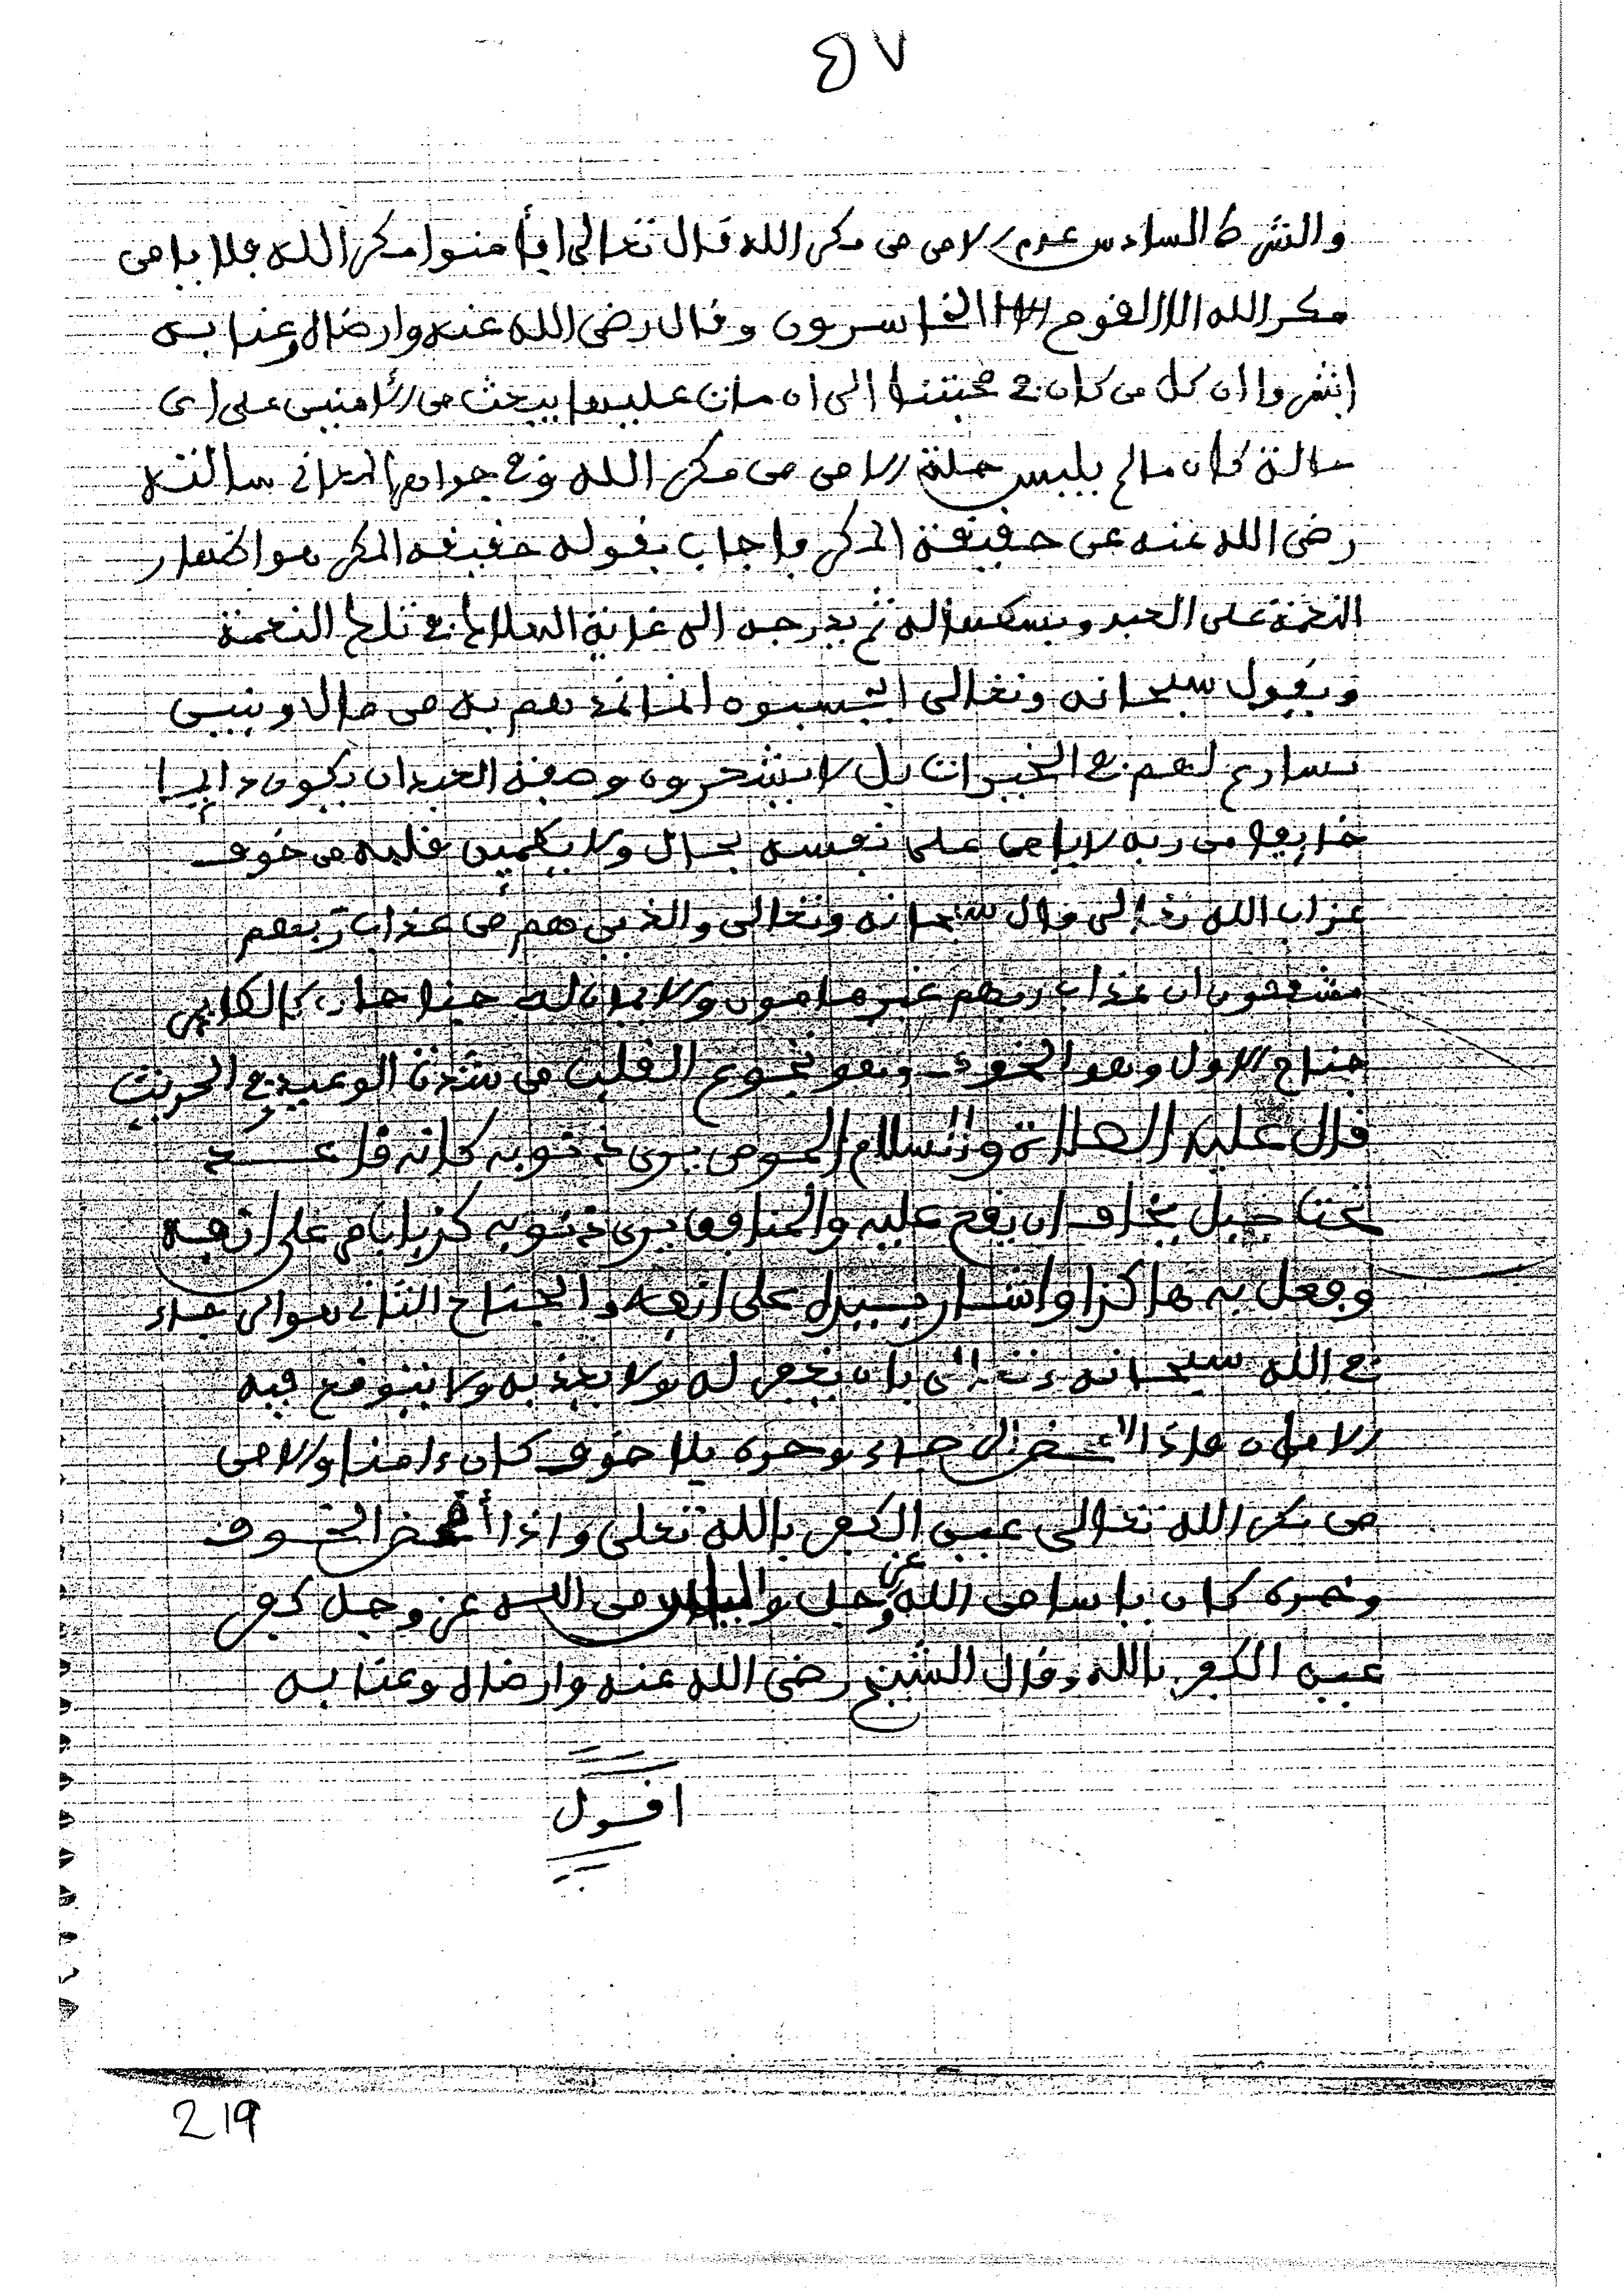 ٤٧
والشرط السادس عدم الامن من مكر الله قال تعالى افأمنوا مكر الله فلا يامن
مكر الله الا القوم الخاسرون وقال رضي الله عنه وارضاه وعنا به
ان كل من كان في محبتنا الى ان مات عليها يبعث من الامنين على اي
حالة كان ما لم يلبس حلة الامن من مكر الله وفي جواهر المعاني سالته
رضي الله عنه عن حقيقة المكر فاجاب بقوله حقيقة المكر هو اظهار
النعمة على العبد وبسطها له ثم يدرجه الى غاية الهلاك في تلك النعمة
ويقول سبحانه وتعالى ايحسبون انما نمدهم به من مال وبنين
نسارع لهم في الخيرات بل لا يشعرون وصفة العبد ان يكون دايما
خايفا من ربه لا يامن على نفسه بحال ولا يطمين قلبه من خوف
عذاب الله تعالى قال سبحانه وتعالى والذين هم من عذاب ربهم
مشفقون ان عذاب ربهم غير مامون والايمان له جناحان كالطاير
جناح الاول وهو الخوف وهو القلب من شدة الوعيد في الحديث
قال عليه الصلاة والسلام المومن يرى ذنوبه كانه قاعد
تحت جبل يخاف ان يقع عليه والمنافق يرى ذنوبه كذباب على انفه
وفعل به هاكذا واشار بيده على انفه والجناح الثاني هو الرجاء
في الله سبحانه وتعالى بان يغفر له ولا يعذبه ولا
الامان هاذا رجاء وحده بلا خوف كان ءامنا والامن
من مكر الله تعالى عين الكفر بالله تعلى واذا الخوف
وحده كان يا سا من الله عز وجل من الله عز وجل كفر
عين الكفر بالله وقال الشيخ رضي الله عنه وارضاه وعنا به
اقول
219